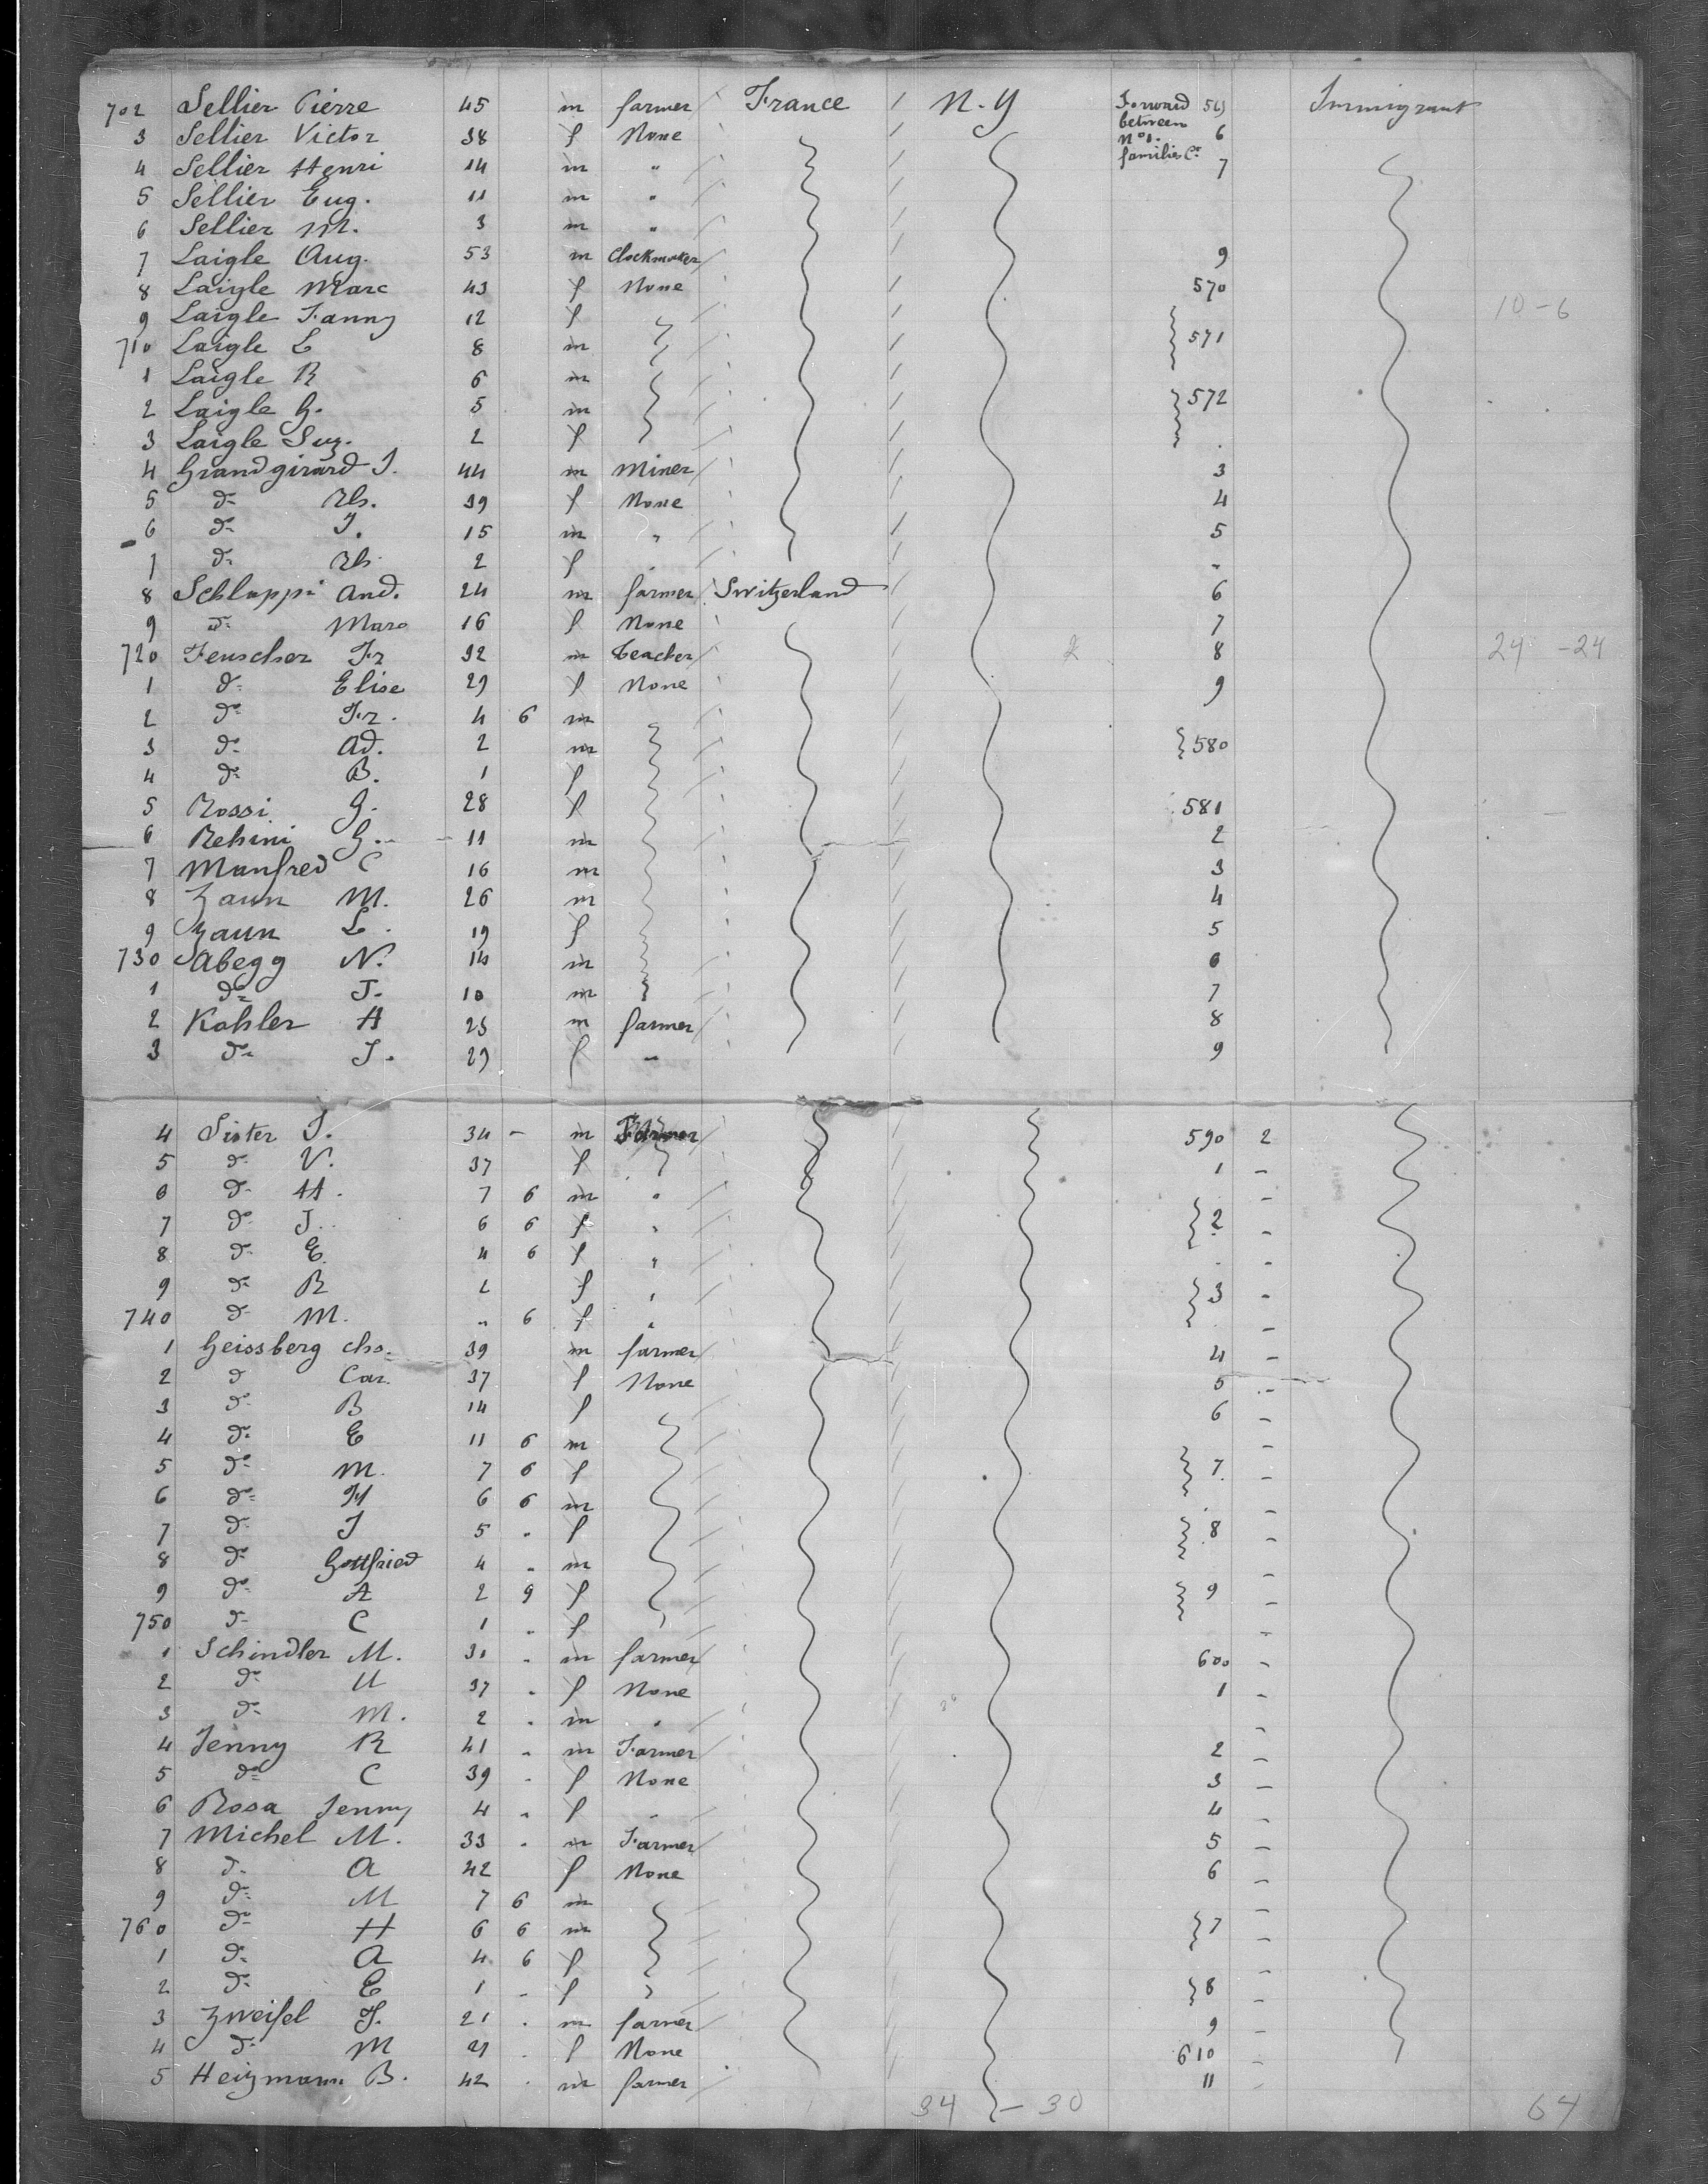 702 Sellier Pierre 45 m farmer France N.Y Forward between Nos. families 565 Immigrant
3 Sellier Victor 38 f None 6
4 Sellier Henri 14 m " 7
5 Sellier Eug. 11 m "
6 Sellier M. 3 m "
7 Laigle Aug. 53 m Clockmaker 9
8 Laigle Marc 43 f None 570
9 Laigle Fanny 12 f 10-6
710 Laigle L 8 m 571
1 Laigle R 6 m
2 Laigle G. 5 m 572
3 Laigle Suz. 2 f
4 Grandgirard J. 44 m Miner 3
5 do Rh. 39 f None 4
6 do J. 15 m " 5
7 do Rh 2 f
8 Schluppi And. 24 m farmer Switzerland 6
9 do Mare 16 f None 7
720 Feuscher Fr 32 m teacher 2 8 24 -24
1 do Elise 29 f None 9
2 do Fr. 4 6 m
3 do Ad. 2 m 580
4 do B. 1 f
5 Rossi G. 28 f 581
6 Rehini G. 11 m 2
7 Manfred C 16 m 3
8 Zaun M. 26 m 4
9 Zaun L. 19 f 5
730 Abegg N. 14 m 6
1 do J. 10 m 7
2 Kohler A 25 m farmer 8
3 do J. 29 f " 9
4 Sister J. 34 - m Farmer 590 2
5 do V. 37 f 1 -
6 do H. 7 6 m " -
7 do J. 6 6 f " 2 -
8 do E. 4 6 f " -
9 do R 2 f " 3 -
740 do M. " 6 f " -
1 Geissberg Chs. 39 m farmer 4 -
2 do Car. 37 f None 5 -
3 do B 14 f 6 -
4 do E 11 6 m -
5 do M. 7 6 f 7 -
6 do H 6 6 m -
7 do J 5 " f 8 -
8 do Gottfried 4 " m -
9 do A 2 9 f 9 -
750 do C 1 " f -
1 Schindler M. 31 " m farmer 600 -
2 do U 37 " f None 1 -
3 do M. 2 " m " -
4 Jenny R 41 " m Farmer 2 -
5 do C 39 - f None 3 -
6 Rosa Jenny 4 " f " 4 -
7 Michel M. 33 " m Farmer 5 -
8 do A 42 f None 6 -
9 do M 7 6 m -
760 do H 6 6 m 7 -
1 do A 4 6 f -
2 do E 1 - f " 8 -
3 Zweifel J. 21 " m farmer 9 -
4 do M 21 " f None 610 -
5 Heizmann B. 42 " m farmer 11 -
34 - 30 64